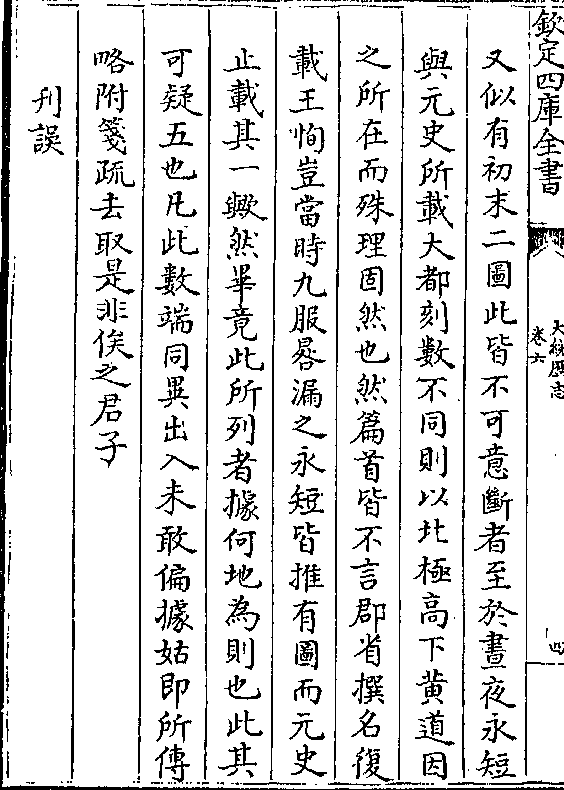 欽定四庫全書
大統厯志
卷六
四
又似有初末二圖此皆不可意斷者至於晝夜永短
與元史所載大都刻數不同則以北極高下黄道因
之所在而殊理固然也然篇首皆不言郡省撰名復
載王恂豈當時九服晷漏之永短皆推有圖而元史
止載其一歟然畢竟此所列者據何地為則也此其
可疑五也凡此數端同異出入未敢偏據姑即所傳
略附箋疏去取是非俟之君子
刋誤